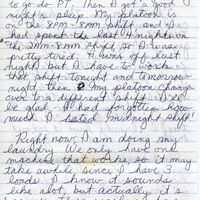 to go do PT. Then I got a good
night's sleep. My platoon is
on the 8PM-8AM shift and I
had spent the last 2 nights on
the 2AM-8AM shift so I was
pretty tired. I was off last
night but I have to work
that shift tonight and tomorrow
night then my platoon changes
over to a different shift. I'll
be glad. I had forgotten how
much I hated midnight shift!
Right now, I am doing my
laundry. We only have one
machine that works, so it may
take awhile, since I have 3
loads. I know it sounds
like alot, but actually, it's